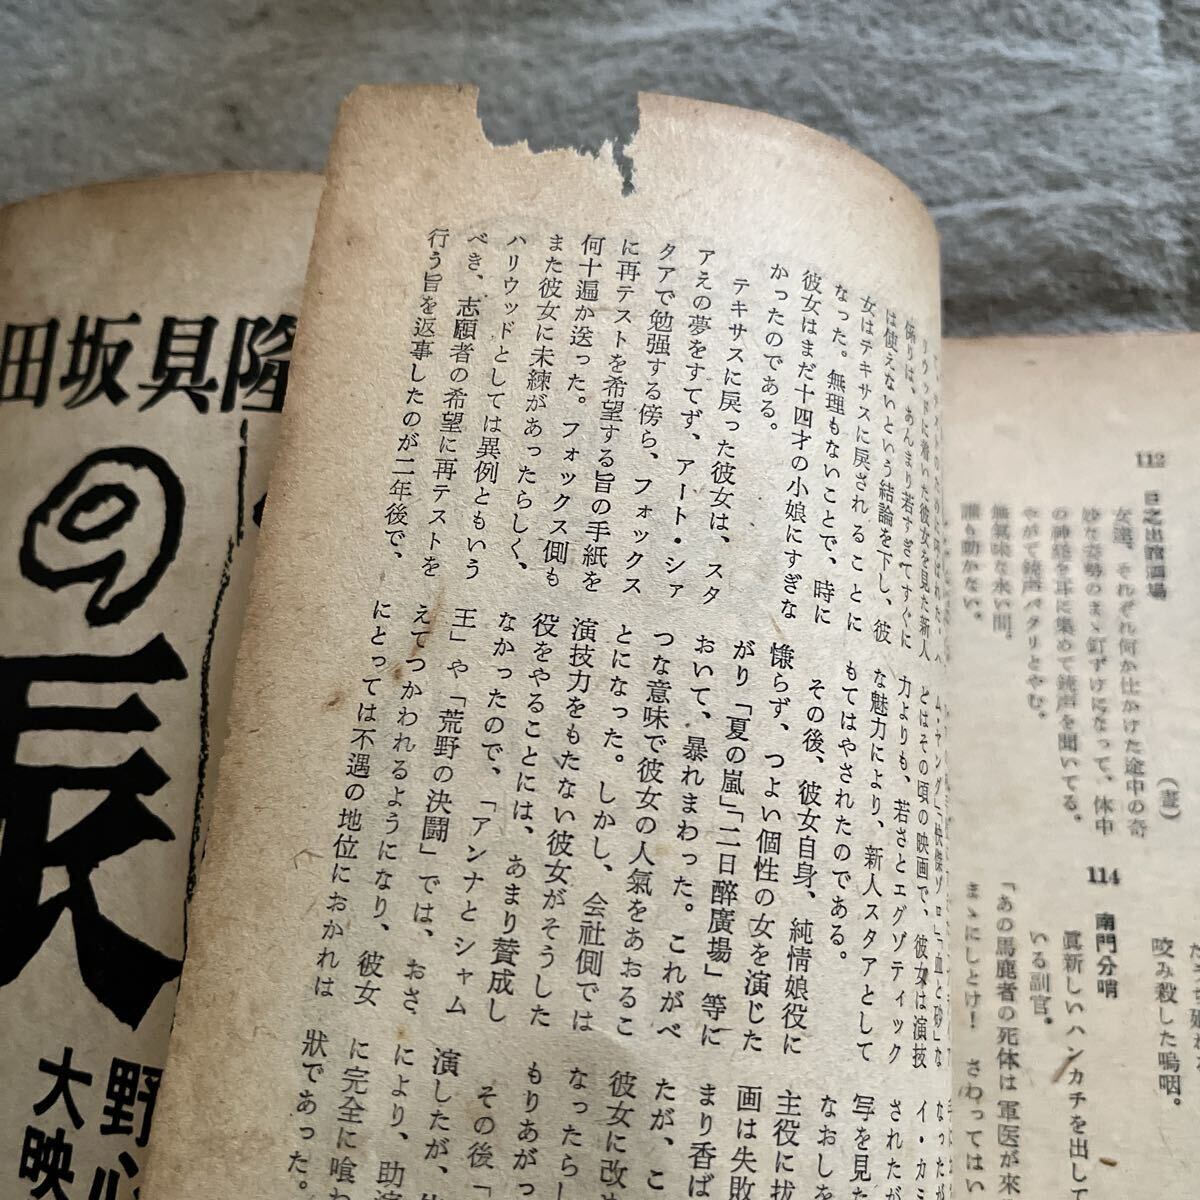 112
日之出酒場
（晝）
女達、それぞれ何か仕かけた途中の奇
妙なまゝ釘ずけになって、体中
の神経を耳に集めて銃声を聞いてる。
やがて銃声パタリとやむ。
無氣味な永い間。
誰も動かない。
咬み殺した嗚咽。
114
南門分哨
眞新しいハンカチを出して
いる訓官。
「あの馬鹿者の死体は軍医が来
まゝにしとけ！　さわってはい
リウッドに着いた彼女を見た新人
係りは、あんまり若すぎてすぐに
は使えないという結論を下し、彼
女はテキサスに戻されることに
なった。無理もないことで、時に
彼女はまだ十四才の小娘にすぎな
かったのである。
テキサスに戻った彼女は、スタ
アえの夢をすてず、アート・シァ
タアで勉強する傍ら、フォックス
に再テストを希望する旨の手紙を
何十遍か送った。フォックス側も
また彼女に未練があったらしく、
ハリウッドとしては異例ともいう
べき、志願者の希望に再テストを
行う旨を返事したのが二年後で、
ム・ヤング」「快傑ゾロ」「血と砂」な
どはその頃の映画で、彼女は演技
力よりも、若さとエグゾティック
な魅力により、新人スタアとして
もてはやされたのである。
その後、彼女自身、純情娘役に
慊らず、つよい個性の女を演じた
がり「夏の嵐」「二日醉廣場」等に
おいて、暴れまわった。これがべ
つな意味で彼女の人氣をあおるこ
とになった。しかし、会社側では
演技力をもたない彼女がそうした
役をやることには、あまり賛成し
なかったので、「アンナとシャム
王」や「荒野の決闘」では、おさ
えてつかわれるようになり、彼女
にとっては不遇の地位におかれは
なったが
イ・カミ
されたが
写を見た
なおしを
主役に抜
画は失敗
まり香ば
たが、こ
彼女に改め
なったらし
もりあがっ
その後「
演したが、
により、助演
に完全に喰わ
狀であった。
田坂具隆
の
長
野心
大映